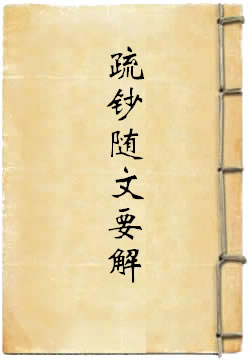 疏钞随文要解